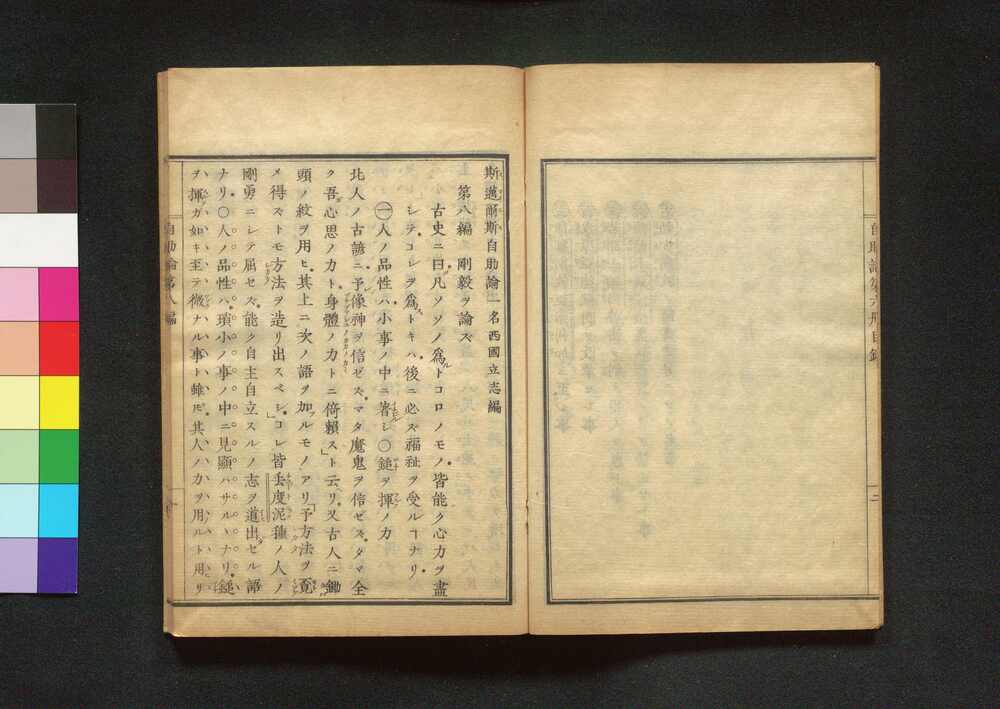 自助論第六冊目錄
二
斯邁爾斯自助論 一名西國立志編
第八編 剛毅ヲ論ズ
古史ニ曰凡ソソノ爲ルトコロノモノ皆能ク心力ヲ盡
シテコレヲ爲トキハ後ニ必ズ福祉ヲ受ルヿナリ
㊀人ノ品性ハ小事ノ中ニ著シ〇鎚ヲ揮ノ力
北人ノ古諺ニ予像神ヲ信ゼズマタ魔鬼ヲ信ゼズタマ全
ク吾心思ノ力ト身體ノ力トニ倚賴スト云リ又古人ニ鋤
頭ノ紋ヲ用ヒ其上ニ次ノ語ヲ加ルモノアリ「予方法ヲ覓
メ得ズトモ方法ヲ造リ出スベシ」コレ皆
ノ人ノ
剛勇ニシテ屈セズ能ク自主自立スルノ志ヲ道出セル語
ナリ〇人ノ品性ハ瑣小ノ事ノ中ニ見顯ハサルヽナリ鎚
ヲ揮ガ如キ至テ微ナル事ト雖𪜈其人ノ力ヲ用ルト用リ
自助論第八編